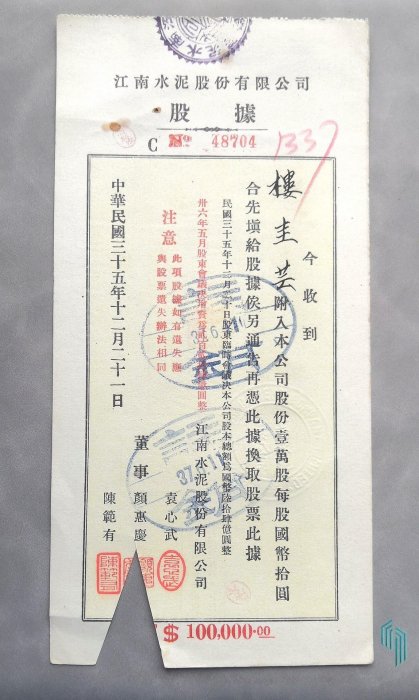 江南水泥股份有限公司
股據
C № 48704
1337
今收到
樓圭芸附入本公司股份壹萬股每股國幣拾圓
合先塡給股據俟另通告再憑此據換取股票此據
民國三十五年十二月二十日股東臨時會議決本公司股本總額爲國幣陸拾肆億圓整
卅六年五月股東會議決增資爲
圓整
注意
此項股據如有遺失應
與股票遺失辦法相同
江南水泥股份有限公司
袁心武
董事 顏惠慶
陳範有
中華民國三十五年十二月二十一日
37.6.11
$ 100,000.00